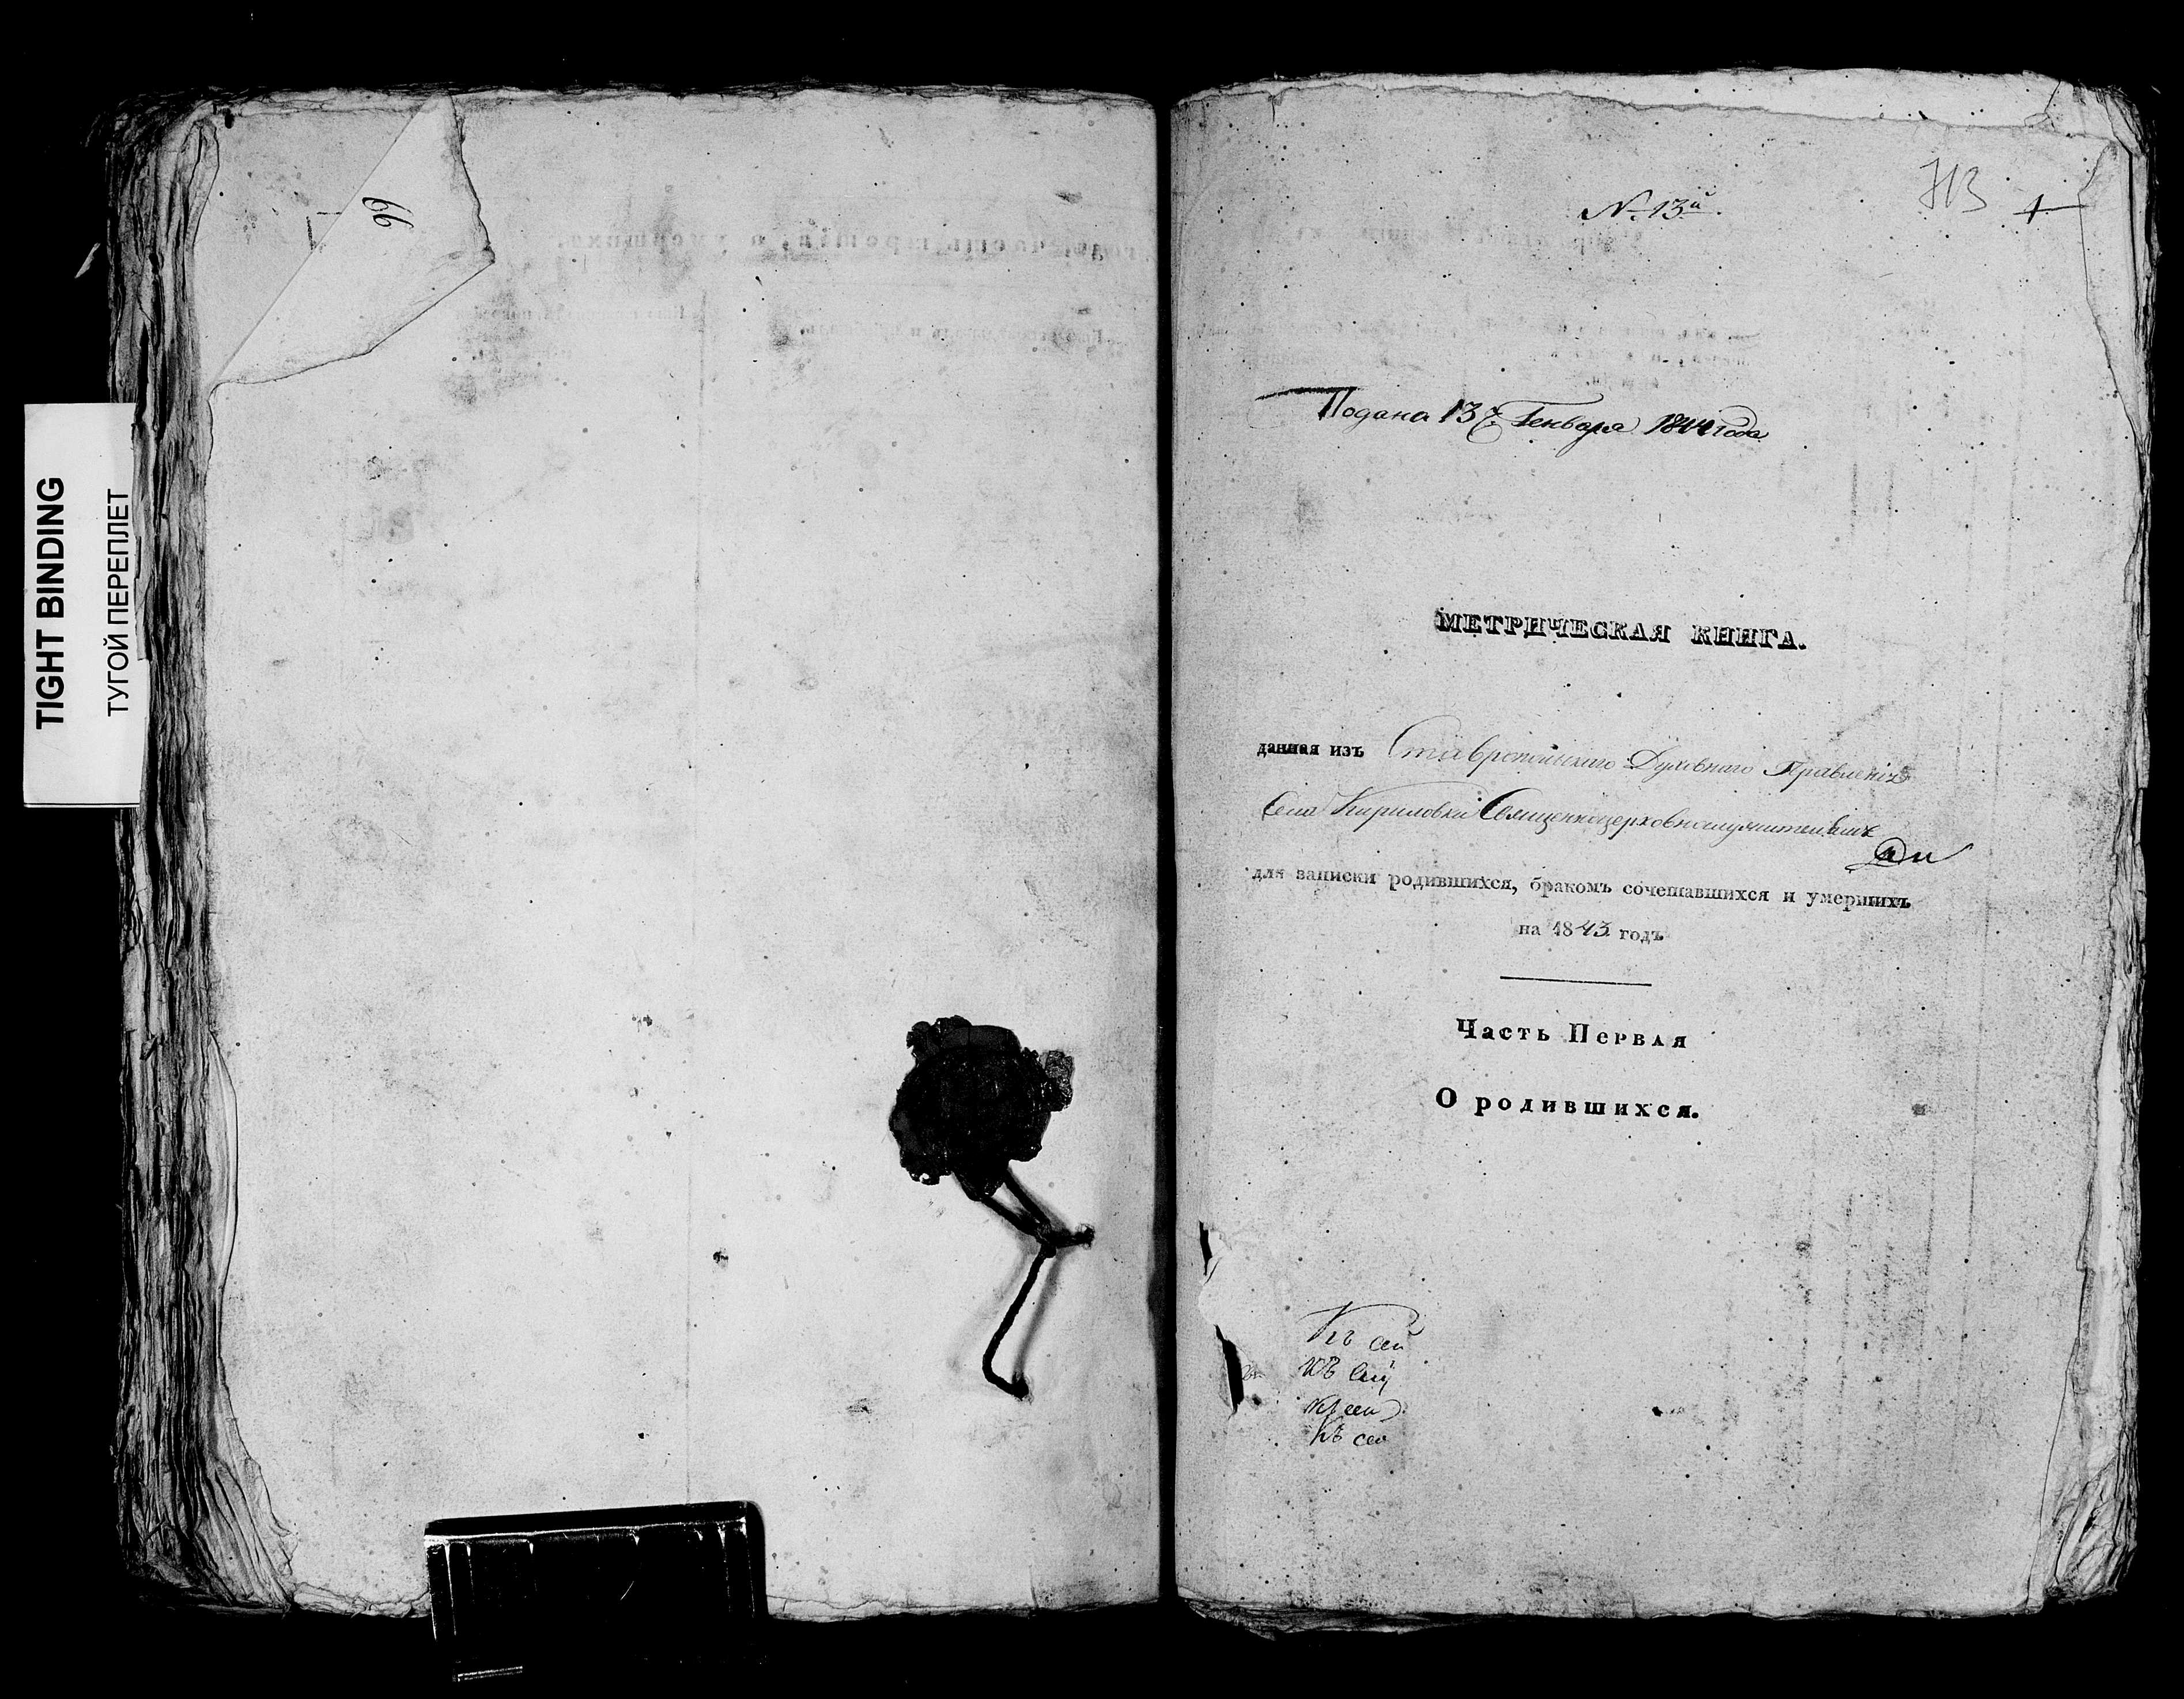 TIGHT BINDING
ТУГОЙ ПЕРЕПЛЕТ
66
№ 13й
713
1
Подана 13 Генваря 1844 года
МЕТРИЧЕСКАЯ КНИГА.
данная изъ Ставропольскаго Духовнаго Правленія
Села Кириловки Священноцерковнослужителямъ
для записки родившихся, бракомъ сочетавшихся и умершихъ
на 1843 годъ
Часть Первая
О родившихся.
Къ сей
къ сей
къ сей
Къ сей